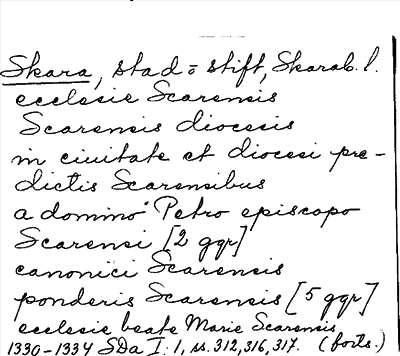 Skara, stad = stift, Skarab. l.
ecclesie Scarensis
Scarensis diocesis
in ciuitate et diocesi pre-
dictis Scarensibus
a domino Petro episcopo
Scarensi [2 ggr]
canonici Scarensis
ponderis Scarensis [5 ggr]
ecclesie beate Marie Scarensis
1330-1334 SDa I:1, ss. 312, 316, 317. (forts.)